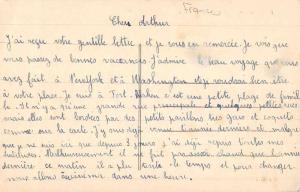 France
Cher Arthur
J'ai reçu votre gentille lettre et je vous en remercie. Je vois que
vous passez de bonnes vacances. J'admire le beau voyage que vous
avez fait à et à Washington et je voudrais bien être
à votre place. Je suis à Fort-Mahon c'est une petite plage de famil
le. Il n'y a qu'une grande rue principale et quelques petites rues
mais elles sont bordées par des petits pavillons très gais et coquets
comme sur la carte. J'y suis déjà venue l'année dernière et malgré
que je ne suis ici que depuis 3 jours j'ai déjà repris toutes mes
habitudes. Malheureusement il ne fait pas chaud que l'année
dernière ce matin il a plu tout le temps et pour changer
nous allons dans une heure.